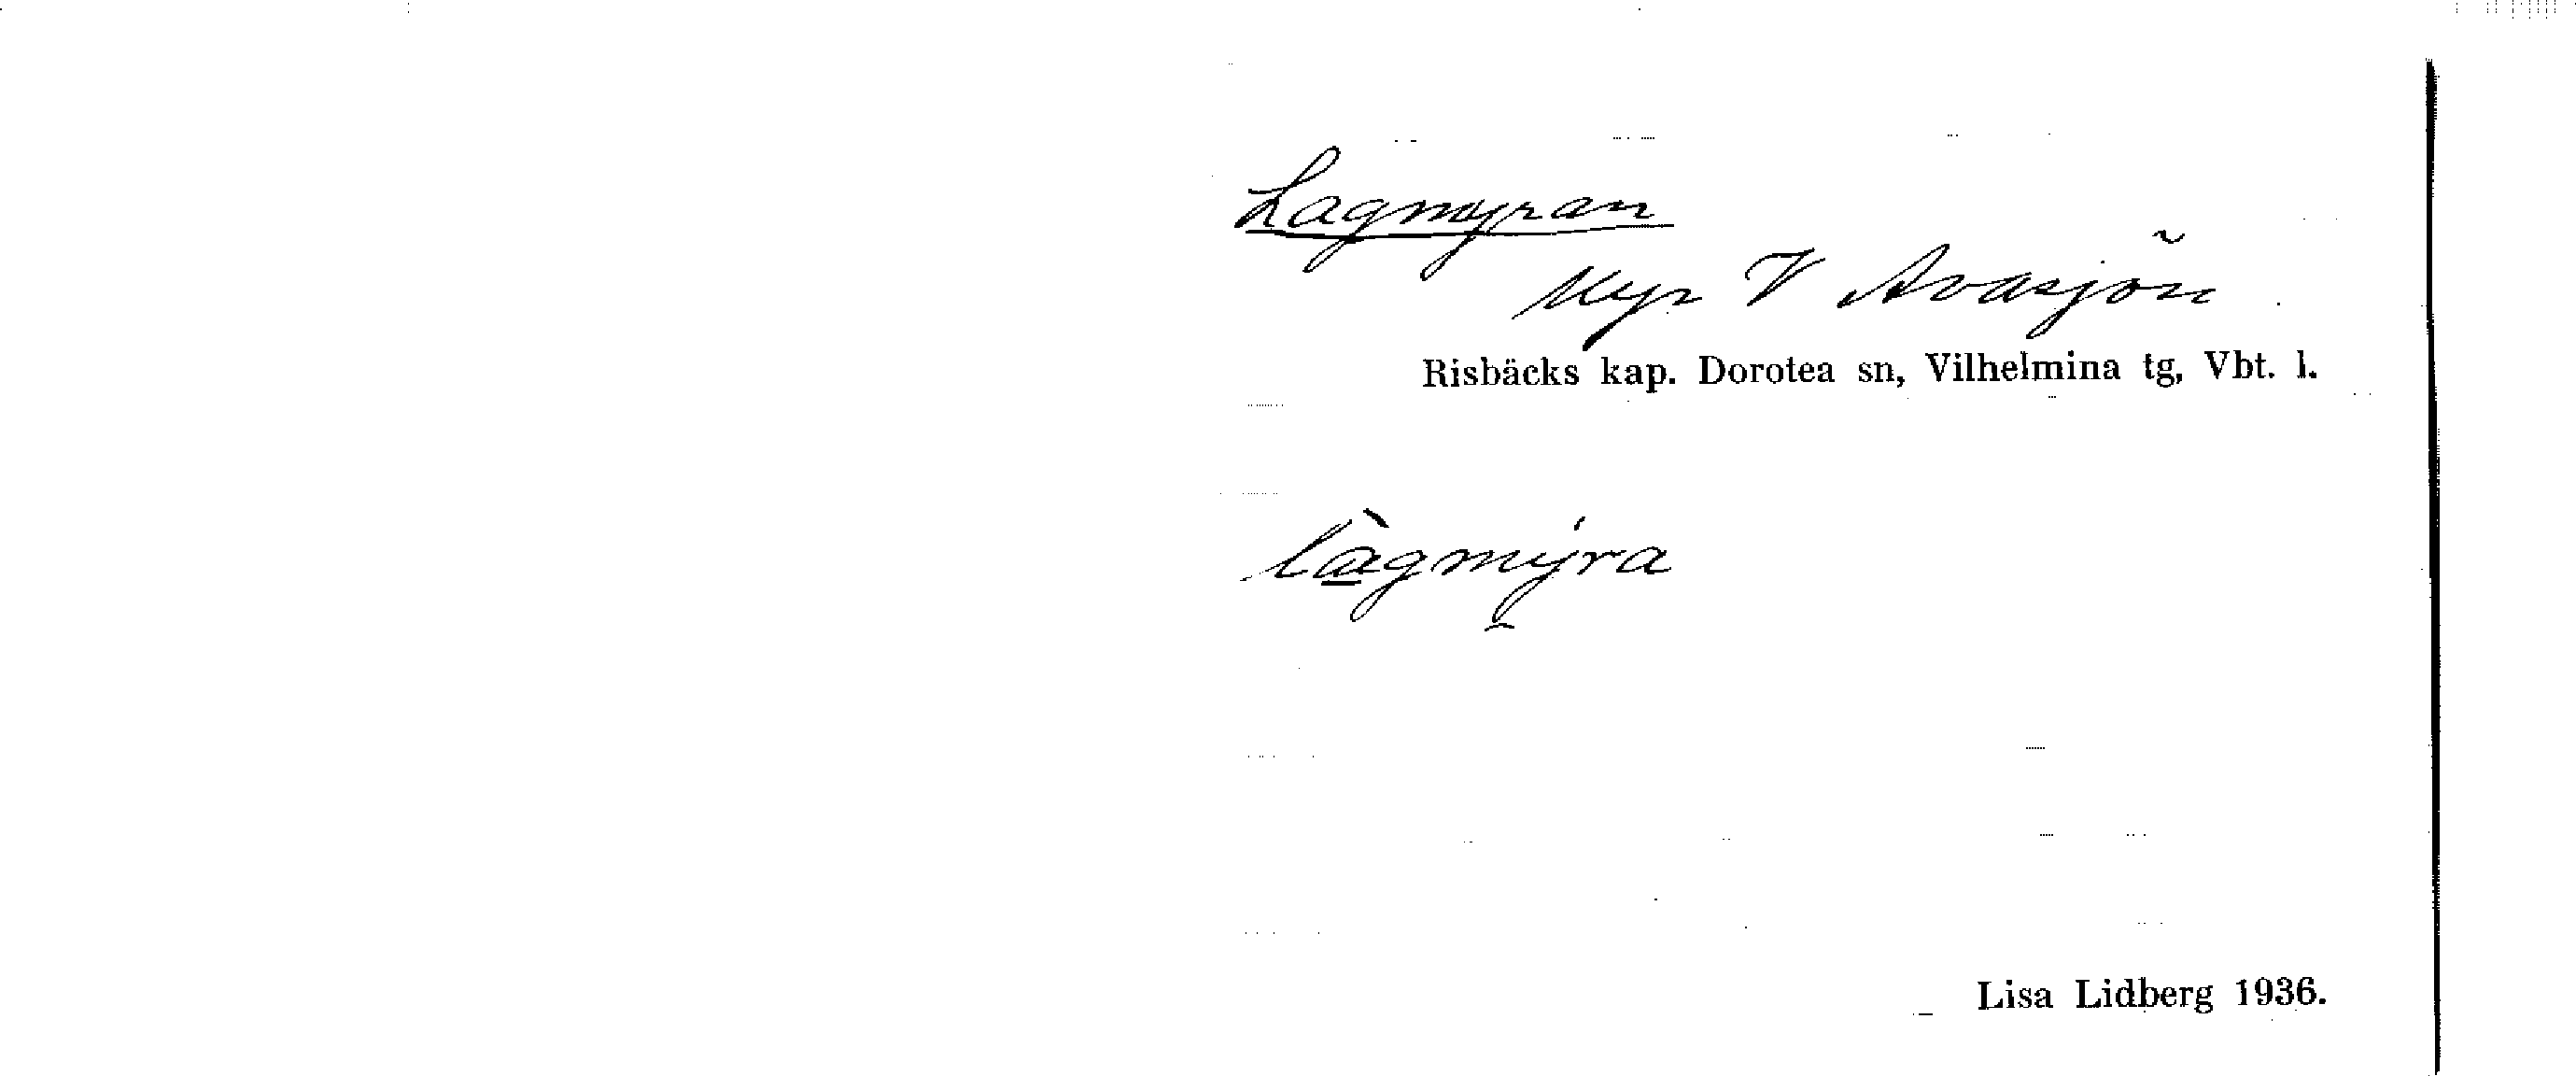 Lagmyran
Myr V Avasjön
Risbäcks kap. Dorotea sn, Vilhelmina tg, Vbt. l.
làgmýra
Lisa Lidberg 1936.